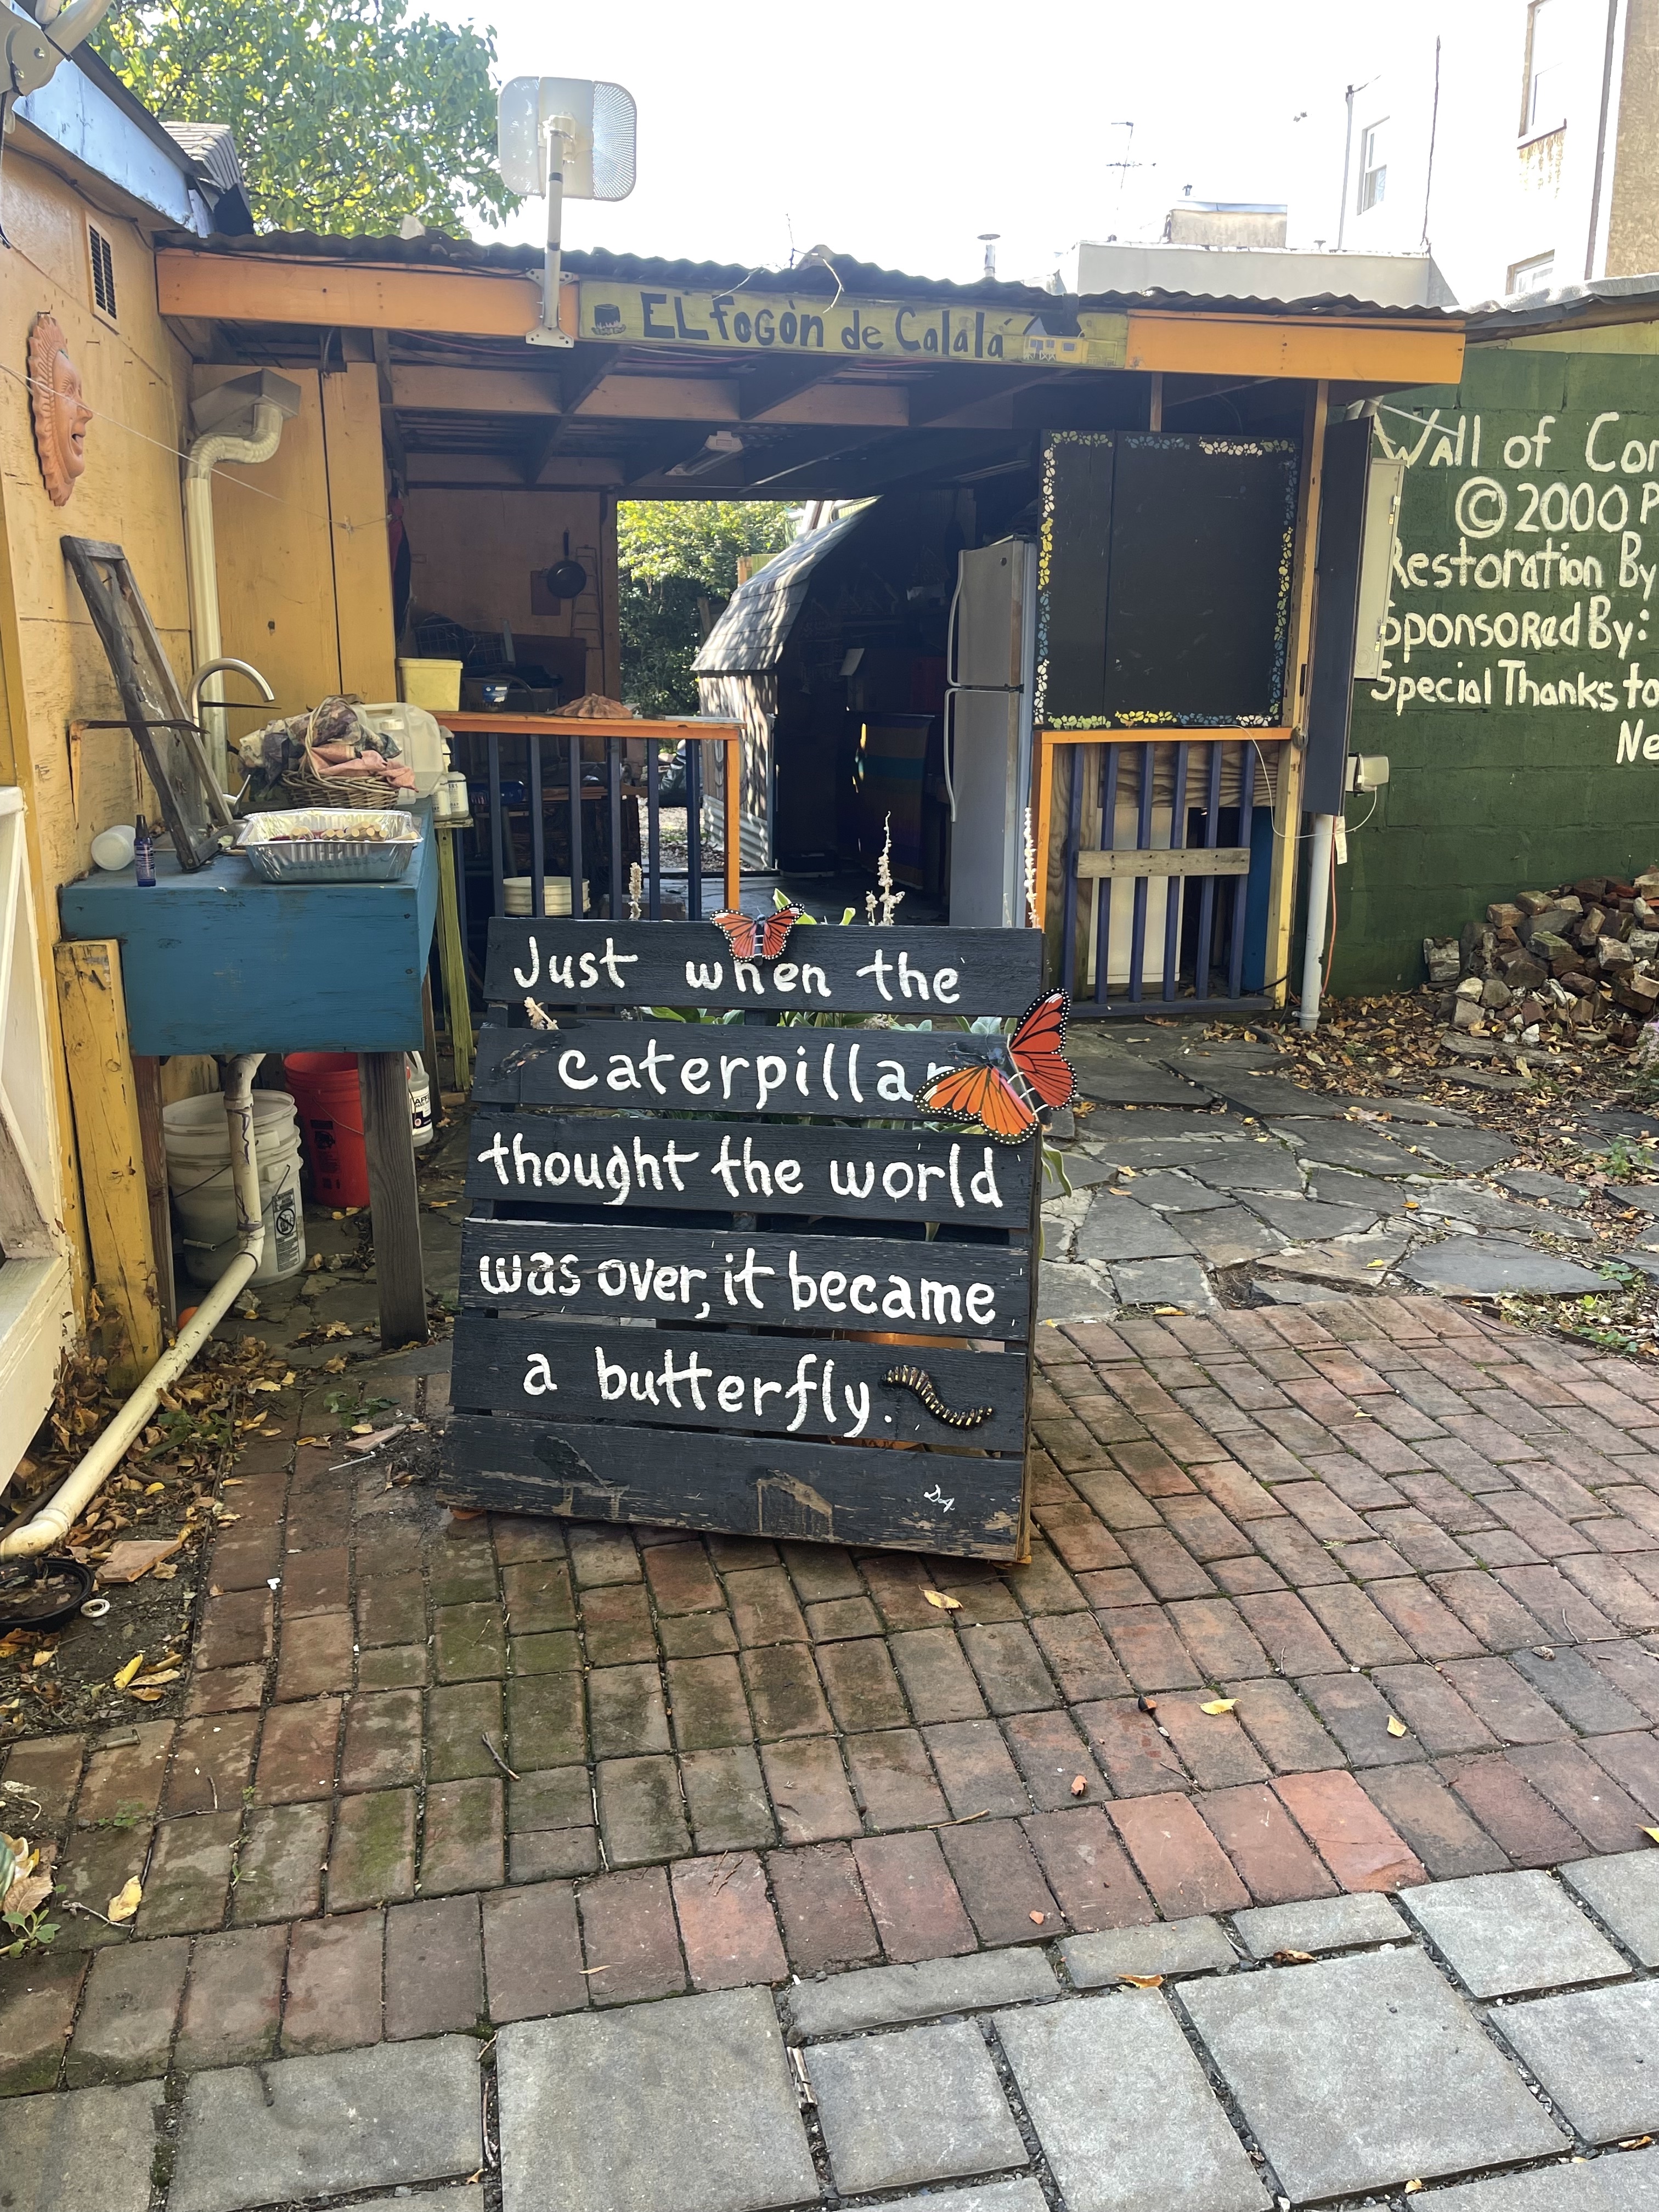 EL FOGÒN de Calalá
Wall of Con
© 2000 P
Restoration By
Sponsored By:
Special Thanks to
Ne
Just when the
caterpillar
thought the world
was over, it became
a butterfly.